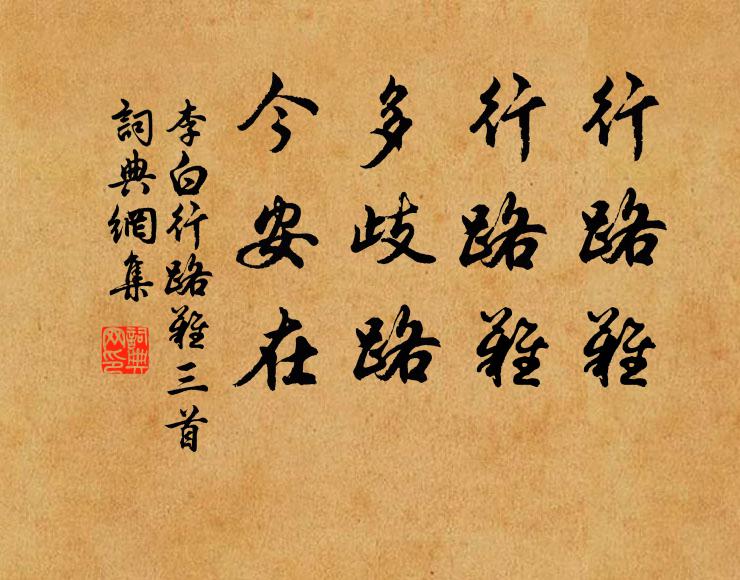 行路難
行路難
多歧路
今安在
李白行路難三首
詞典網集
詞典
网印